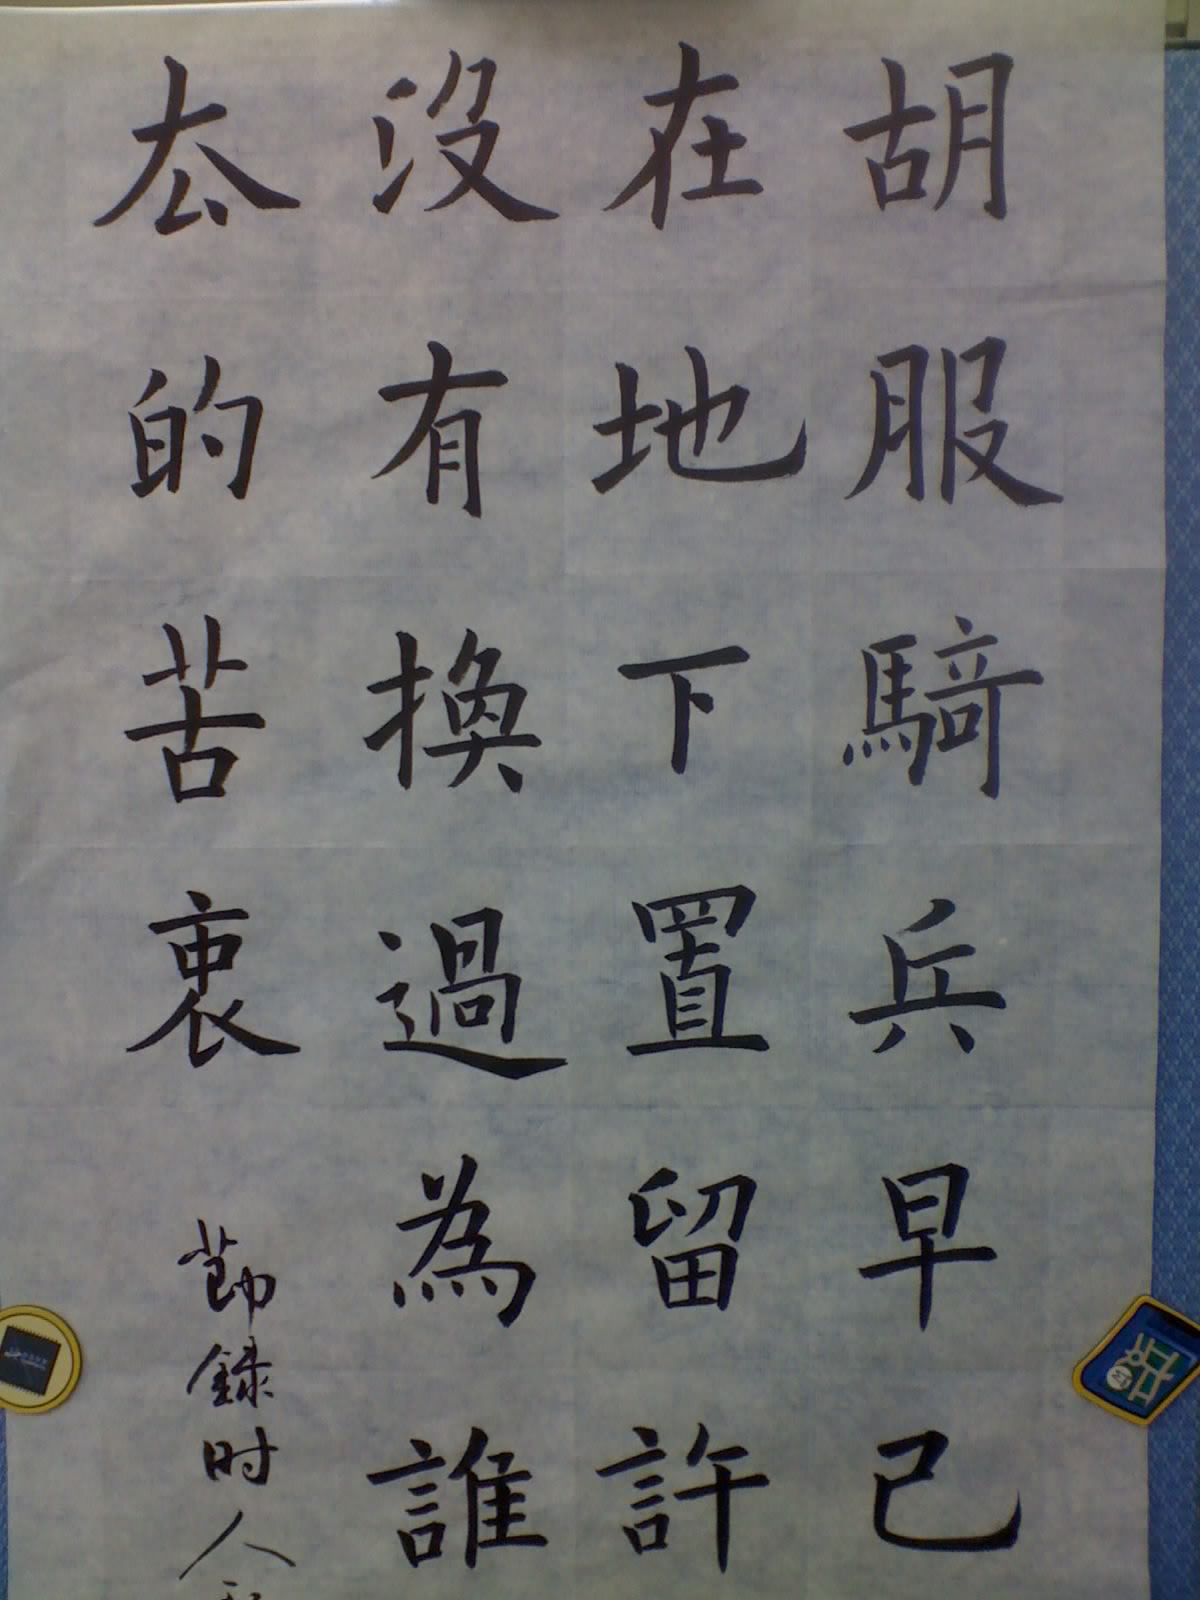 胡服騎兵早已
在地下置留許
沒有換過為誰
厺的苦衷
節錄时人